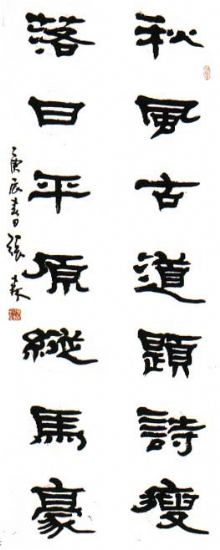 秋風古道題詩瘦
落日平原縱馬豪
庚辰春日張森